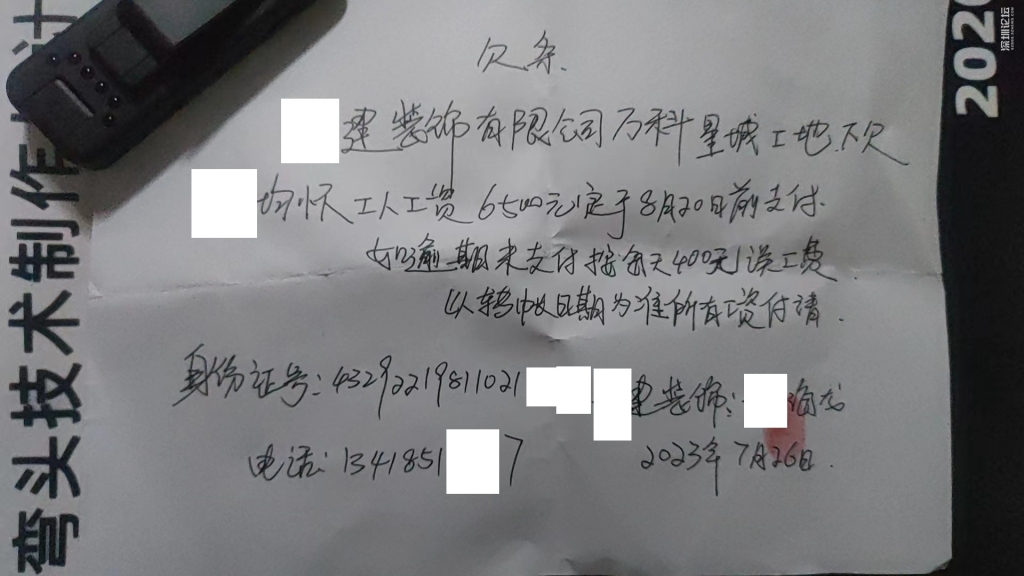 欠条.
建装饰有限公司万科星城工地下欠
均怀工人工资6500元定于8月20日前支付.
如逾期未支付按每天400元误工费
以转收日期为准所有工资付清.
身份证号:43292219811021
建装饰:
电话:1341851 7
2023年7月26日.
弯头技术制作
202
深圳论坛